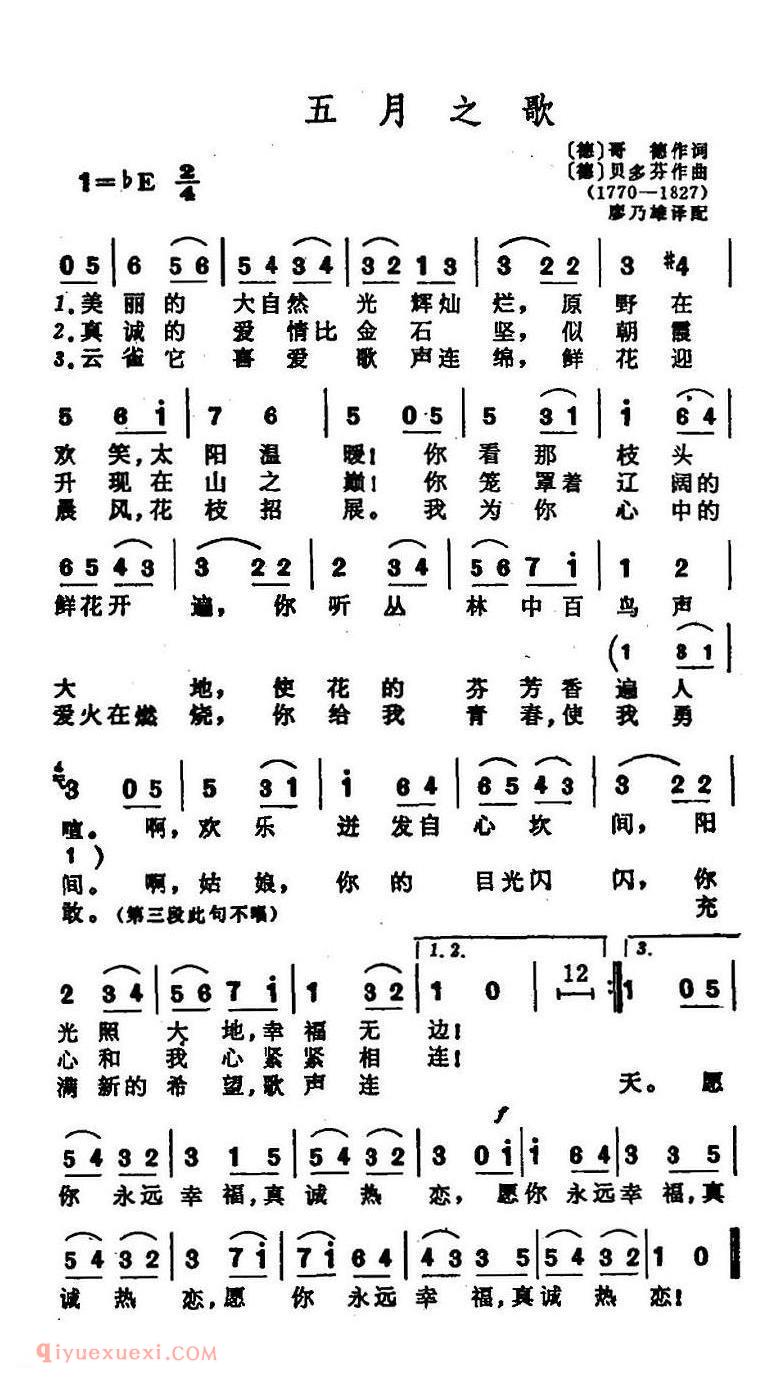 五月之歌
〔德〕哥 德作词
1=♭E 2/4
〔德〕贝多芬作曲
(1770—1827)
廖乃雄译配
0 5 | 6 5 6 | 5 4 3 4 | 3 2 1 3 | 3 2 2 | 3 #4 |
1.美丽的 大自然 光 辉灿 烂, 原 野在
2.真诚的 爱 情比 金 石 坚, 似 朝霞
3.云雀它 喜 爱 歌 声连 绵, 鲜 花迎
5 6 i | 7 6 | 5 0 5 | 5 3 1 | i 6 4 |
欢 笑,太 阳 温 暖! 你 看 那 枝 头
升 现在 山 之 巅! 你 笼 罩着 辽 阔的
晨 风,花 枝 招 展。 我 为 你 心 中的
6 5 4 3 | 3 2 2 | 2 3 4 | 5 6 7 i | 1 2 |
鲜花开 遍, 你 听 丛 林 中 百 鸟 声
(1 3 1 |
大 地, 使 花 的 芬 芳 香 遍 人
爱火在燃 烧, 你 给 我 青 春,使 我 勇
3 0 5 | 5 3 1 | i 6 4 | 6 5 4 3 | 3 2 2 |
喧。 啊, 欢 乐 迸 发自 心 坎 间, 阳
1 )
间。 啊, 姑 娘, 你 的 目光闪 闪, 你
敢。(第三段此句不唱) 充
1.2. 3.
2 3 4 | 5 6 7 i | 1 3 2 | 1 0 | 12 :| 1 0 5 |
光 照 大 地,幸 福 无 边!
心 和 我 心 紧 紧 相 连!
满 新的 希 望,歌 声 连 天。 愿
f
5 4 3 2 | 3 1 5 | 5 4 3 2 | 3 0 i | i 6 4 | 3 3 5 |
你 永远 幸 福,真 诚 热 恋, 愿 你 永远 幸 福,真
5 4 3 2 | 3 7 i | 7 i 6 4 | 4 3 3 5 | 5 4 3 2 | 1 0 ‖
诚 热 恋,愿 你 永远 幸 福,真 诚 热 恋!
qiyuexuexi.com